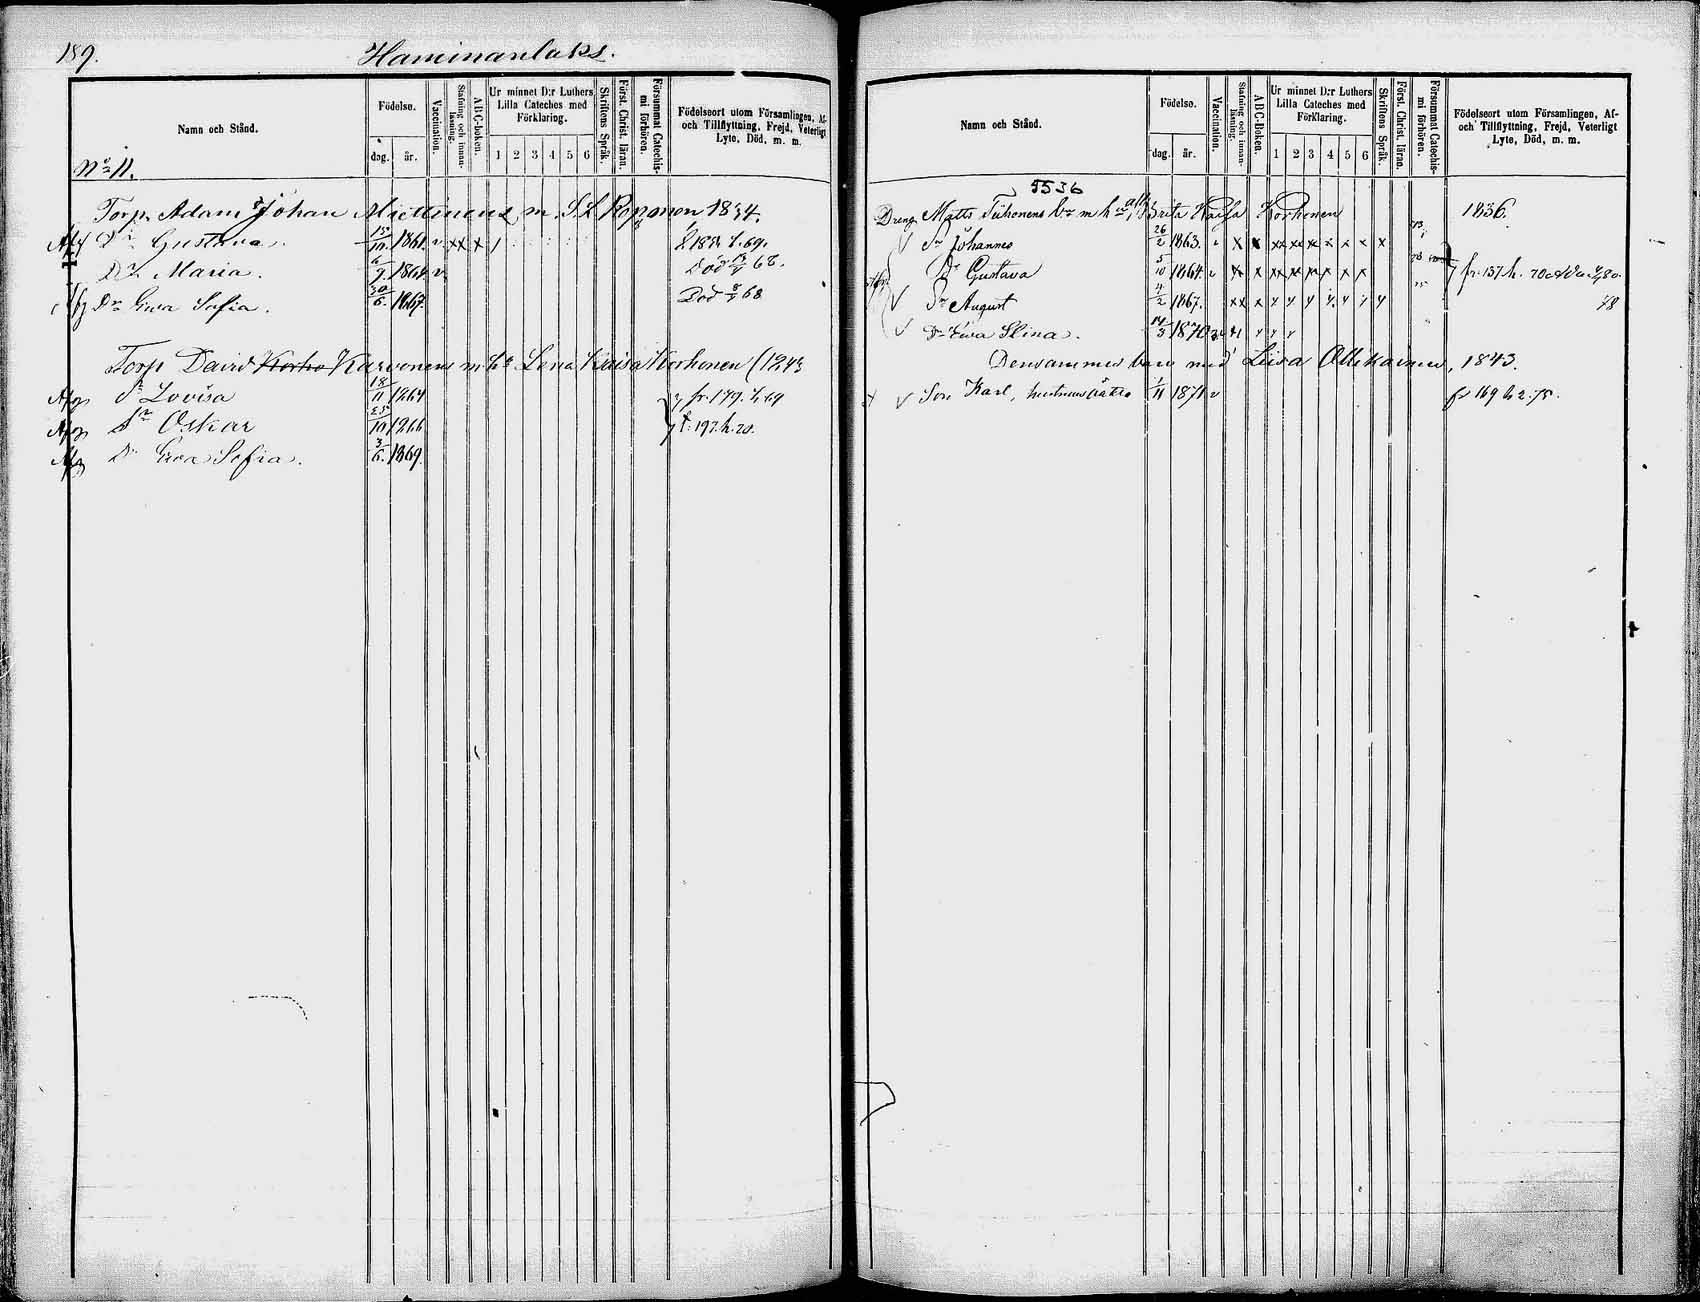 189. Haminanlaks.
Namn och Stånd.
Födelse.
dag. år.
Vaccination.
Stafning och innan-läsning.
ABC-boken.
Ur minnet D:r Luthers Lilla Cateches med Förklaring.
1 2 3 4 5 6
Skriftens Språk.
Först. Christ. läran.
Försummat Catechis-mi förhören.
Födelseort utom Församlingen, Af-
och Tillflyttning, Frejd, Veterligt
Lyte, Död, m. m.
No 11.
Torp. Adam Johan Miettinens m. S. L. Roponen 1834.
Dr Gustava. 10. 1861. v xx x / 183 69.
Dr Maria. 6/9 1864 v Död 68.
Dr Ewa Sofia. 30/6. 1867. Död 8 68
Torp David Korho Karvonens m h Lena Kaisa Korhonen (1243
Dr Lovisa 18/11 1264 fr. 179. 69
Sr Oskar 25/10 1266 f. 192. h. 20.
Dr Ewa Sofia. 3/6. 1869.
Namn och Stånd.
Födelse.
dag. år.
Vaccination.
Stafning och innan-läsning.
ABC-boken.
Ur minnet D:r Luthers Lilla Cateches med Förklaring.
1 2 3 4 5 6
Skriftens Språk.
Först. Christ. läran.
Försummat Catechis-mi förhören.
Födelseort utom Församlingen, Af-
och Tillflyttning, Frejd, Veterligt
Lyte, Död, m. m.
5536
Dreng Matts Tiihonens bn m h Brita Kaisa Korhonen 1836.
Sn Johannes 26/2 1863. v x x xx xx xx x x x x
Dr Gustava 5/10 1864. v fr. 137. h. 70
Sn August 4/2 1867. xx x 78
Dr Ewa Slina. 14/3 1870
Densammes barn med Liisa Ollikainen, 1843.
Son Karl, hustruns oäkta 1/11 1871 v 169 h 2. 75.